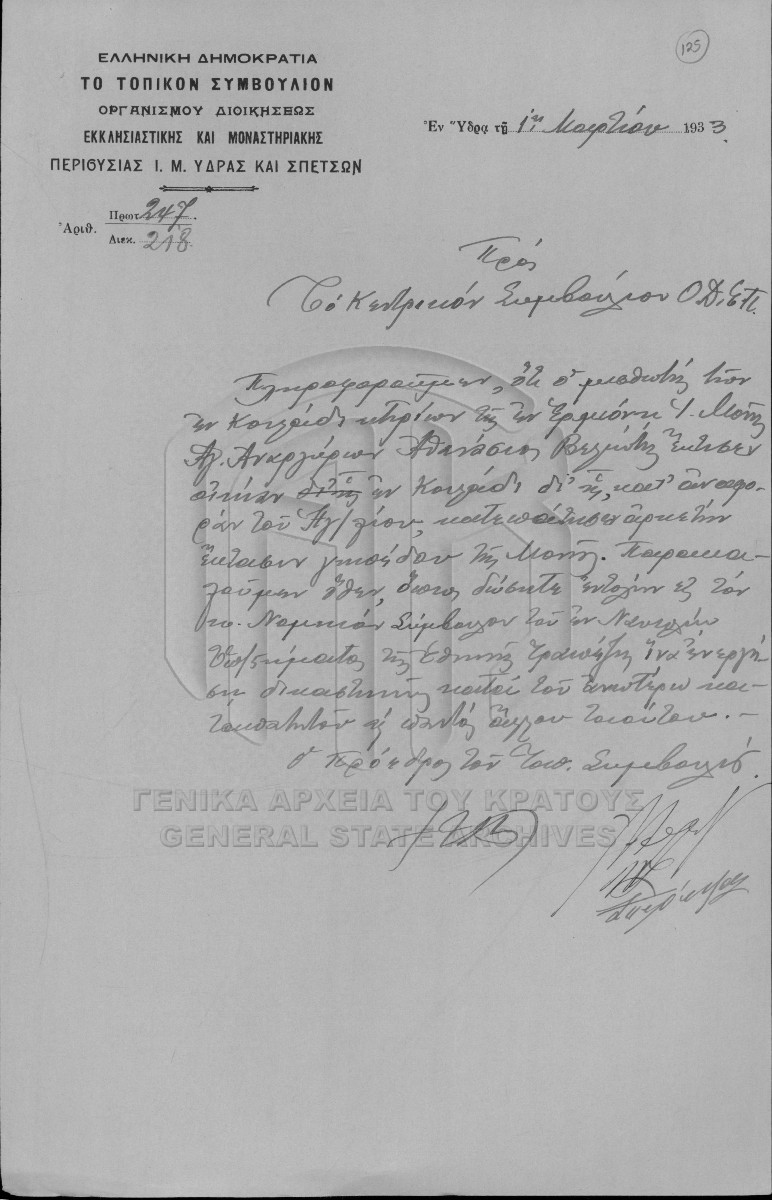 125
ΕΛΛΗΝΙΚΗ ΔΗΜΟΚΡΑΤΙΑ
ΤΟ ΤΟΠΙΚΟΝ ΣΥΜΒΟΥΛΙΟΝ
ΟΡΓΑΝΙΣΜΟΥ ΔΙΟΙΚΗΣΕΩΣ
ΕΚΚΛΗΣΙΑΣΤΙΚΗΣ ΚΑΙ ΜΟΝΑΣΤΗΡΙΑΚΗΣ
ΠΕΡΙΘΥΣΙΑΣ Ι. Μ. ΥΔΡΑΣ ΚΑΙ ΣΠΕΤΣΩΝ
Ἐν Ὕδρᾳ τῇ 1ῃ Μαρτίου 1933
Ἀριθ. Πρωτ. 247.
Διεκ. 218
Πρός
Τό Κεντρικόν Συμβούλιον Ο.Δ.Ε.Π.
Πληροφοροῦμεν, ὅτι ὁ μισθωτής τῶν
ἐν Κοιλάδι κτηρίων τῆς ἐν Ἑρμιόνῃ Ἱ. Μονῆς
Ἁγ. Ἀναργύρων Ἀθανάσιος ἔκτισεν
οἰκίαν ἐν Κοιλάδι δι' ἧς, κατ' ἀναφο-
ράν τοῦ Ἡγ/λίου, κατεπάτησεν ἀρκετήν
ἔκτασιν γηπέδου τῆς Μονῆς. Παρακα-
λοῦμεν ὅθεν, ὅπως δώσητε ἐντολήν εἰς τόν
κ. Νομικόν Σύμβουλον τοῦ ἐν Ναυπλίῳ
Ὑπ/ξήματος τῆς Ἐθνικῆς Τραπέζης ἵνα ἐνεργή-
σῃ δικαστικῶς κατά τοῦ ἀνωτέρω κα-
ταπατητοῦ ὡς παντός ἄλλου τοιούτου. —
Ὁ Πρόεδρος τοῦ Τοπ. Συμβουλίου
ΓΕΝΙΚΑ ΑΡΧΕΙΑ ΤΟΥ ΚΡΑΤΟΥΣ
GENERAL STATE ARCHIVES